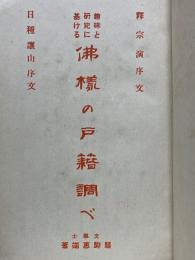 釋宗演序文
趣味と
研究に
基ける
佛樣の戸籍調べ
文學士
惠端著
日種讓山序文